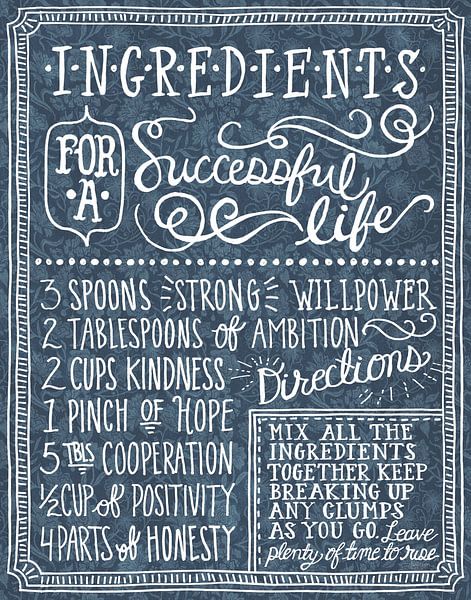 I·N·G·R·E·D·I·E·N·T·S
FOR
·A·
Successful
life
3 SPOONS STRONG WILLPOWER
2 TABLESPOONS of AMBITION
2 CUPS KINDNESS
Directions
1 PINCH OF HOPE
5 TBLS COOPERATION
½ CUP of POSITIVITY
4 PARTS of HONESTY
MIX ALL THE
INGREDIENTS
TOGETHER KEEP
BREAKING UP
ANY GLUMPS
AS YOU GO. Leave
plenty of time to rise